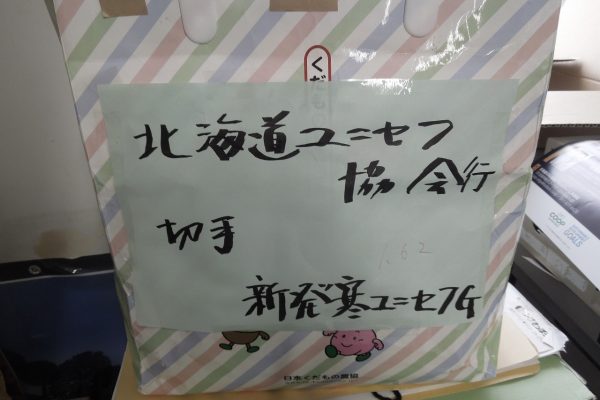 くだ
北海道ユニセフ
協会行
切手
1.62
新発寒ユニセフG
日本くだもの農協
COOP
GOALS